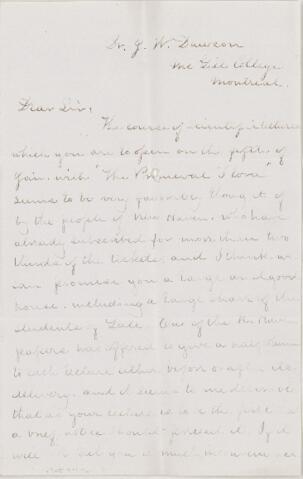 Dr. J. W. Dawson
McGill College
Montreal.
Dear Sir,
The course of scientific lectures
which you are to open on the fifth of
Jan. with "The Primeval Flora"
seems to be very favorably thought of
by the people of New Haven, who have
already subscribed for more than two
thirds of the tickets, and I think
can promise you a large and good
house, including a large share of the
students of Yale. One of the
papers has offered to give a
to each lecture either before or after its
delivery, and it seems to me
that as your lecture is to be the first
a brief notice should precede it. If it
will you much